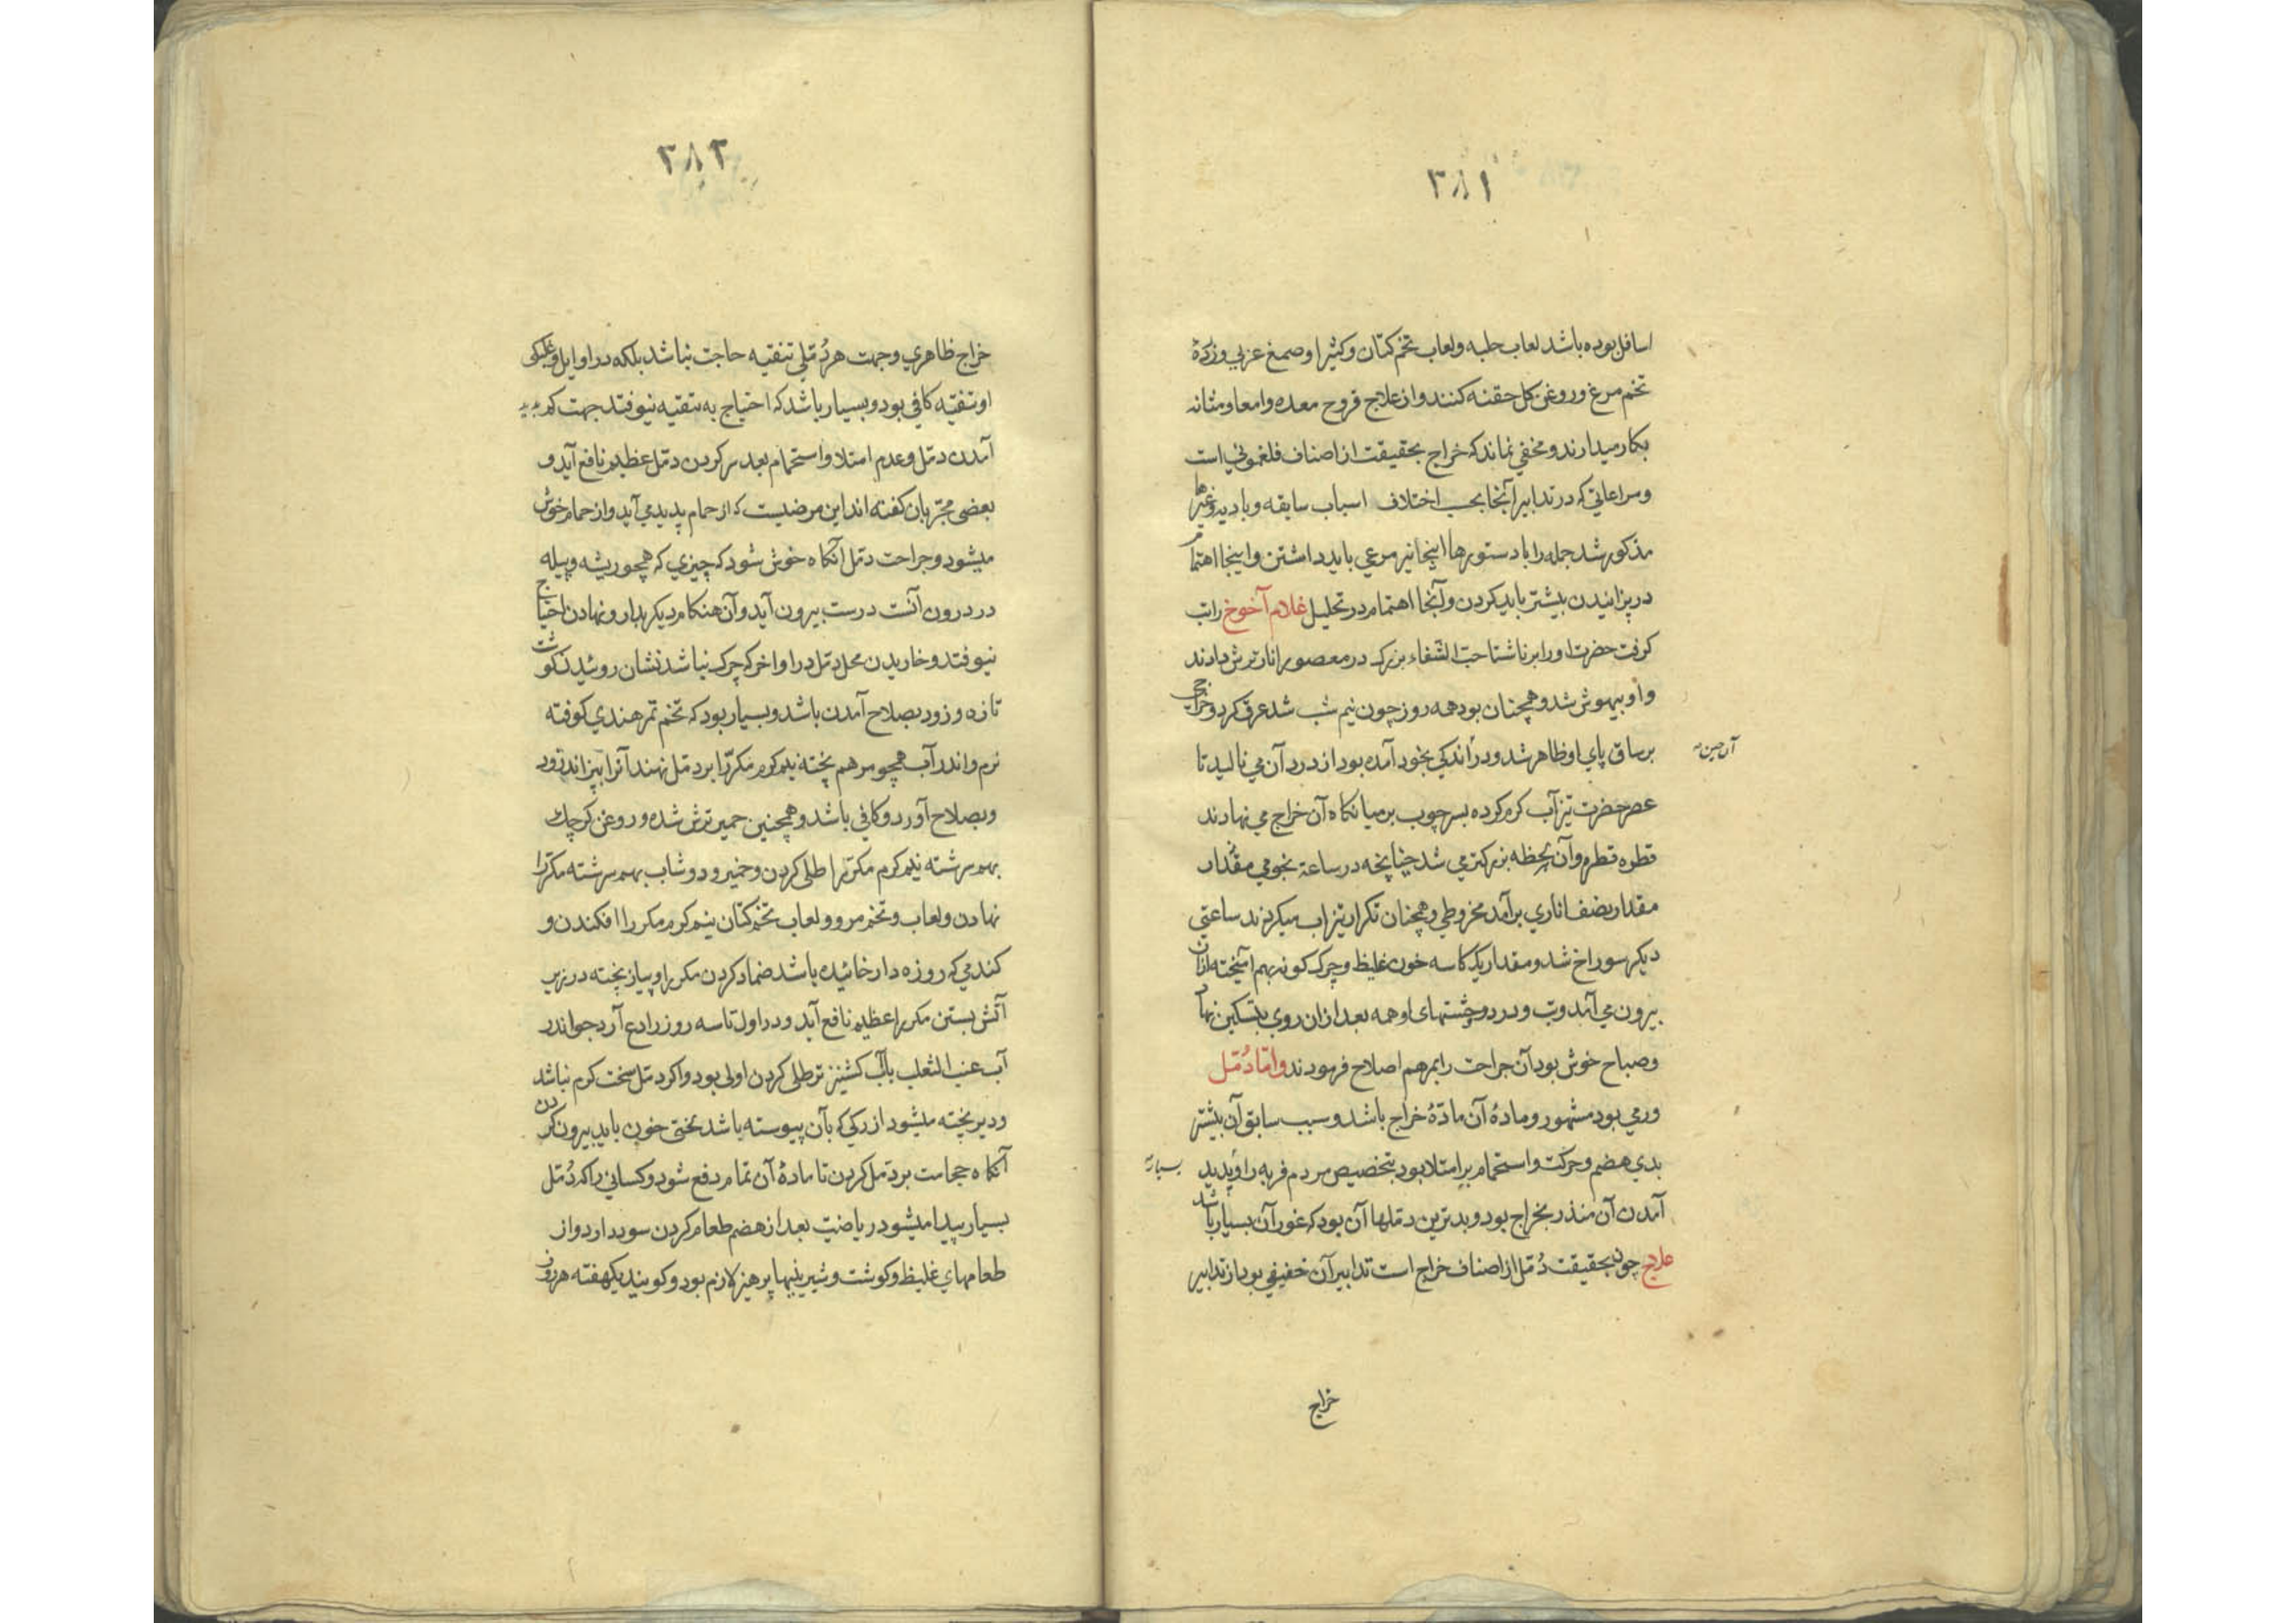 ۳۸۱
اسافل بوده باشد لعاب حلبه و لعاب تخم کتان و کثیرا و صمغ عربی و زردهٔ
تخم مرغ و روغن کل حقنه کنند و از علاج قروح معده و امعا و مثانه
بکار میدارند و مخفی نماند که خراج بحقیقت از اصناف فلغمونی است
و مراعاتی که در تدابیر آنجا بحسب اختلاف اسباب سابقه و بادیه و غیرها
مذکور شد جمله را با دستورها اینجا نیز مرعی باید داشتن و اینجا اهتمام
در پزانیدن بیشتر باید کردن و آنجا اهتمام در تحلیل غلام آخوخ را تب
کرفت حضرت او را بر ناشتا حب الشفاء بزرک در معصور انار ترش دادند
و او بیهوش شد و همچنان بود همه روز چون نیم شب شد عرق کرد و خراجی
بر ساق پای او ظاهر شد و در اندکی بخود آمده بود از درد آن می نالید تا
آن حین
عصر حضرت تیزآب کرم کرده بسر چوب بر میانکاه آن خراج می نهادند
قطره قطره و آن لحظه بزرکتر می شد چنانچه در ساعة نجومی مقدار
مقدار نصف اناری برآمد مخروطی و همچنان تکرار تیزاب میکردند ساعتی
دیکر سوراخ شد و مقدار یک کاسه خون غلیظ و چرک کونه بهم آمیخته ازان
بیرون می آمد و تب و درد و همه بعد ازان روی بتسکین نهاد
و صباح خوش بود آن جراحت را بمرهم اصلاح فرمودند و امّا دُمّل
ورمی بود مشهور و مادهٔ آن مادّهٔ خراج باشد و سبب سابق آن بیشتر
بدی هضم و حرکت و استحمام بر امتلا بود بتخصیص مردم فربه را و پدید
بسیار
آمدن آن منذر بخراج بود و بدترین دملها آن بود که غور آن بسیار باشد
علاج چون بحقیقت دُمّل از اصناف خراج است تدابیر آن خفیفی بود از تدابیر
خراج
۳۸۲
خراج ظاهری و جهت هر دُمّلی تنقیه حاجت نباشد بلکه در اوایل و
او تنقیه کافی بود و بسیار باشد که احتیاج به تنقیه نیوفتد جهت کم پدید
آمدن دمّل و عدم امتلا و استحمام بعد سر کردن دمّل عظیم نافع آید و
بعضی مجرّبان کفته اند این مرضیست که از حمام پدید می آید و از حمام خوش
میشود و جراحت دمّل آنکاه خوش شود که چیزی که همچو ریشه و پیله
در درون آنست درست بیرون آید و آن هنکام دیکر بدارو نهادن احتیاج
نیوفتد و خاریدن محل دمّل در اواخر که چرک نباشد نشان روئیدن کوشت
تازه و زود بصلاح آمدن باشد و بسیار بود که تخم تمر هندی کوفته
نرم و اندر آب همچو مرهم پخته نیم کرم مکرّرا بر دمّل نهند آنرا بپزاند زود
و بصلاح آورد و کافی باشد و همچنین خمیر ترش شده و روغن کرچک
بهم سرشته نیم کرم مکرّرا طلی کردن و خمیر و دوشاب بهم سرشته مکرّرا
نهادن و لعاب و تخم مرو و لعاب تخم کتان نیم کرم مکرر را افکندن و
کندمی که روزه دار خائیده باشد ضماد کردن مکرر را و پیاز پخته در زیر
آتش بستن مکرر را عظیم نافع آید و در اول تا سه روز رادع آرد جو اندر
آب عنب الثعلب یا آب کشنیز تر طلی کردن اولی بود و اکر دمّل سخت کرم نباشد
و دیر پخته میشود از رکی که بآن پیوسته باشد بختی خون باید بیرون کردن
آنکاه حجامت بر دمّل کردن تا مادهٔ آن تمام دفع شود و کسانی را که دُمّل
بسیار پیدا میشود ریاضت بعد از هضم طعام کردن سود دارد و از
طعامهای غلیظ و کوشت و شیرینیها پرهیز لازم بود و کویند یکهفته هر روز